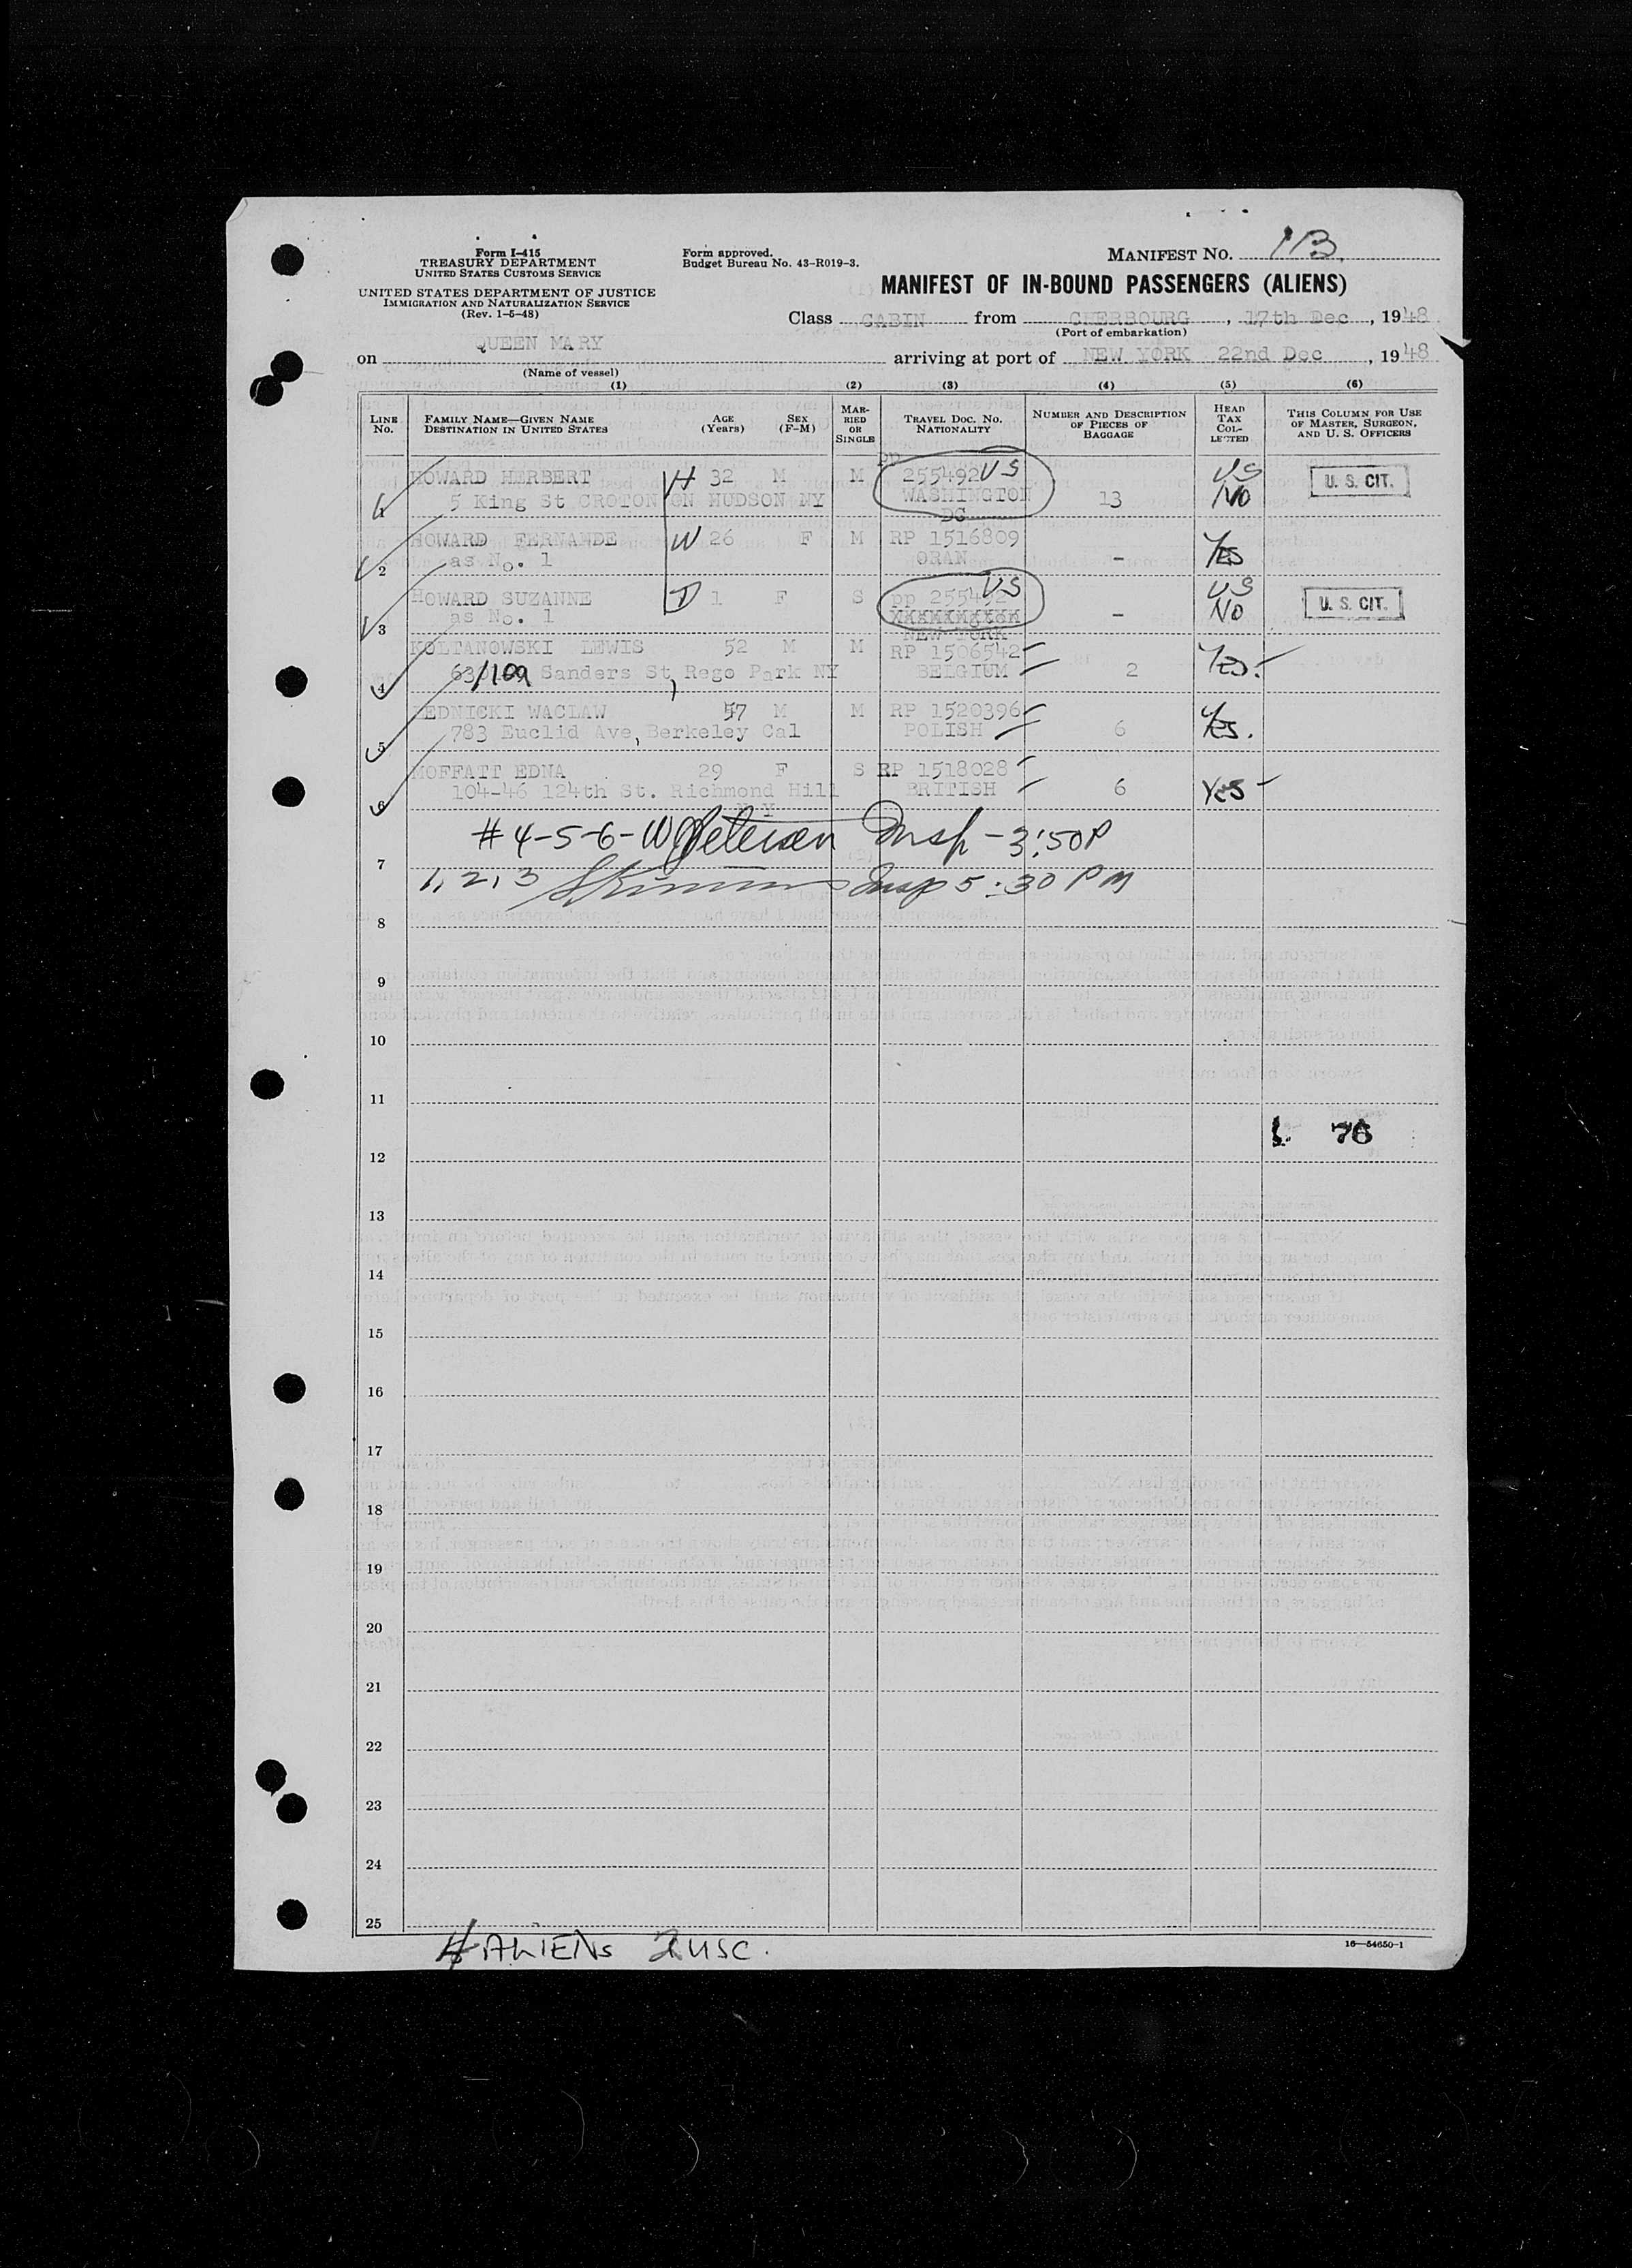 Form I-415
TREASURY DEPARTMENT
UNITED STATES CUSTOMS SERVICE
UNITED STATES DEPARTMENT OF JUSTICE
IMMIGRATION AND NATURALIZATION SERVICE
(Rev. 1-5-48)
Form approved.
Budget Bureau No. 43-R019-3.
MANIFEST NO. 1B.
MANIFEST OF IN-BOUND PASSENGERS (ALIENS)
Class CABIN from CHERBOURG, 17th Dec, 1948
(Port of embarkation)
on QUEEN MARY arriving at port of NEW YORK 22nd Dec, 1948
(Name of vessel)
(1) (2) (3) (4) (5) (6)
LINE No. FAMILY NAME—GIVEN NAME DESTINATION IN UNITED STATES AGE (Years) SEX (F-M) MARRIED OR SINGLE TRAVEL DOC. NO. NATIONALITY NUMBER AND DESCRIPTION OF PIECES OF BAGGAGE HEAD TAX COLLECTED THIS COLUMN FOR USE OF MASTER, SURGEON, AND U. S. OFFICERS
1 HOWARD HERBERT H 32 M M pp 255492 US US U. S. CIT.
5 King St CROTON ON HUDSON NY WASHINGTON DC 13 No
2 HOWARD FERNANDE W 26 F M RP 1516809
as No. 1 ORAN - Yes
3 HOWARD SUZANNE D 1 F S pp 255492 US US U. S. CIT.
as No. 1 NEW YORK - No
4 KOLTANOWSKI LEWIS 52 M M RP 1506542 Yes.
/109 Sanders St, Rego Park NY BELGIUM 2
5 LEDNICKI WACLAW 57 M M RP 1520396 Yes.
783 Euclid Ave, Berkeley Cal POLISH 6
6 MOFFATT EDNA 29 F S RP 1518028
104-46 124th St. Richmond Hill BRITISH 6 Yes
N Y
#4-5-6- W Petersen Insp - 3:50P
7 1, 2, 3 Insp 5:30 PM
8
9
10
11
76
12
13
14
15
16
17
18
19
20
21
22
23
24
25
4 ALIENS 2 USC.
16—54650-1